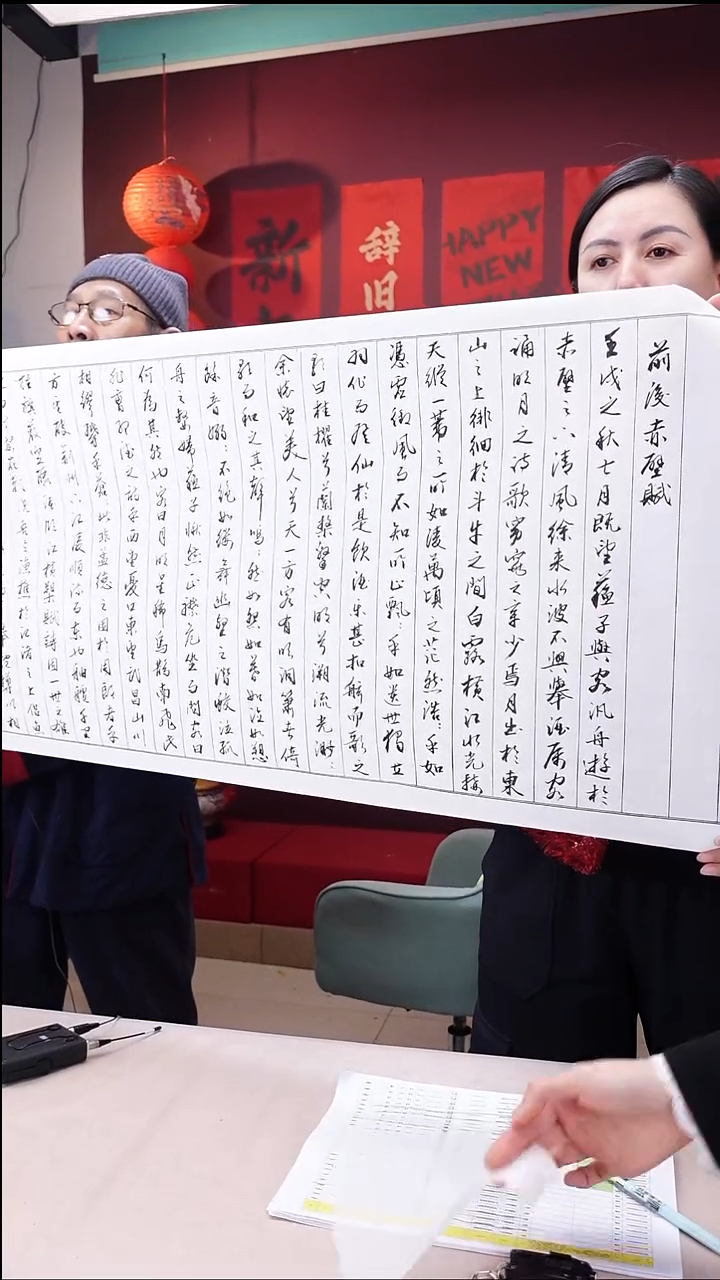 新
辞旧
HAPPY
NEW
前後赤壁賦
壬戌之秋七月既望蘇子與客汎舟遊於
赤壁之下清風徐來水波不興舉酒屬客
誦明月之詩歌窈窕之章少焉月出於東
山之上徘徊於斗牛之間白露橫江水光接
天縱一葦之所如凌萬頃之茫然浩〻乎如
憑虛御風而不知所止飄〻乎如遺世獨立
羽化而登仙於是飲酒樂甚扣舷而歌之
歌曰桂櫂兮蘭槳擊空明兮溯流光渺〻
余懷望美人兮天一方客有吹洞簫者倚
歌而和之其聲嗚〻然如怨如慕如泣如愬
餘音嫋〻不絕如縷舞幽壑之潛蛟泣孤
舟之嫠婦蘇子愀然正襟危坐而問客曰
何為其然也客曰月明星稀烏鵲南飛此
非曹孟德之詩乎西望夏口東望武昌山川
相繆鬱乎蒼此非孟德之困於周郎者乎
方其破荊州下江陵順流而東也舳艫千里
旌旗蔽空釃酒臨江橫槊賦詩固一世之雄